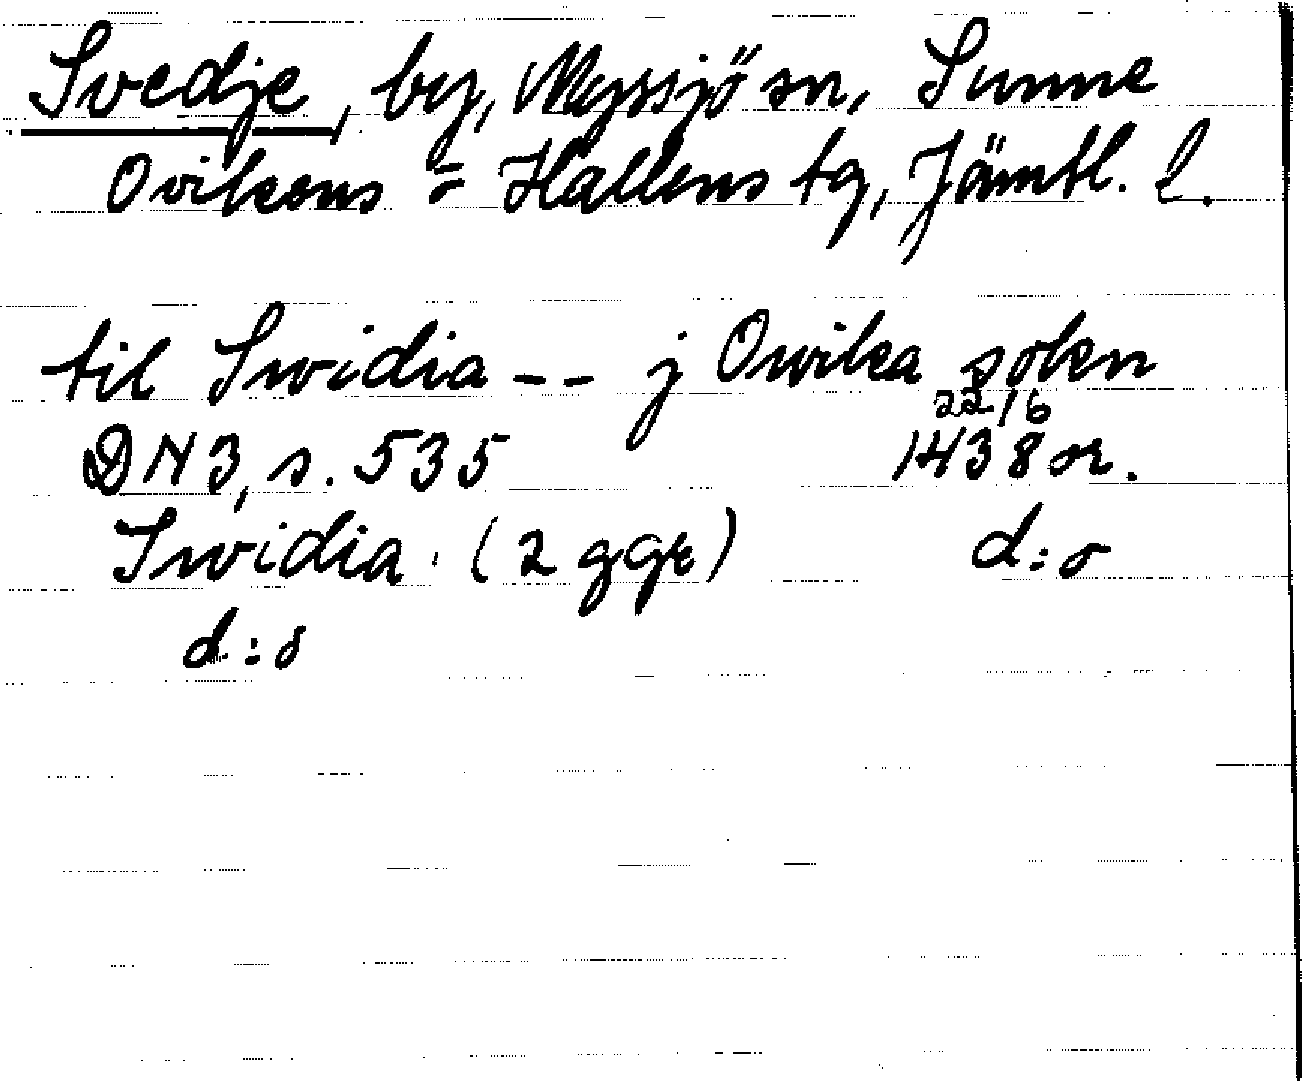 Svedje, by, Myssjö sn, Sunne
Ovikens = Hallens tg, Jämtl. l.
til Swidia -- j Owika sokn
DN 3, s. 535 22/6 1438 or.
Swidia (2 ggr) d:o
d:o